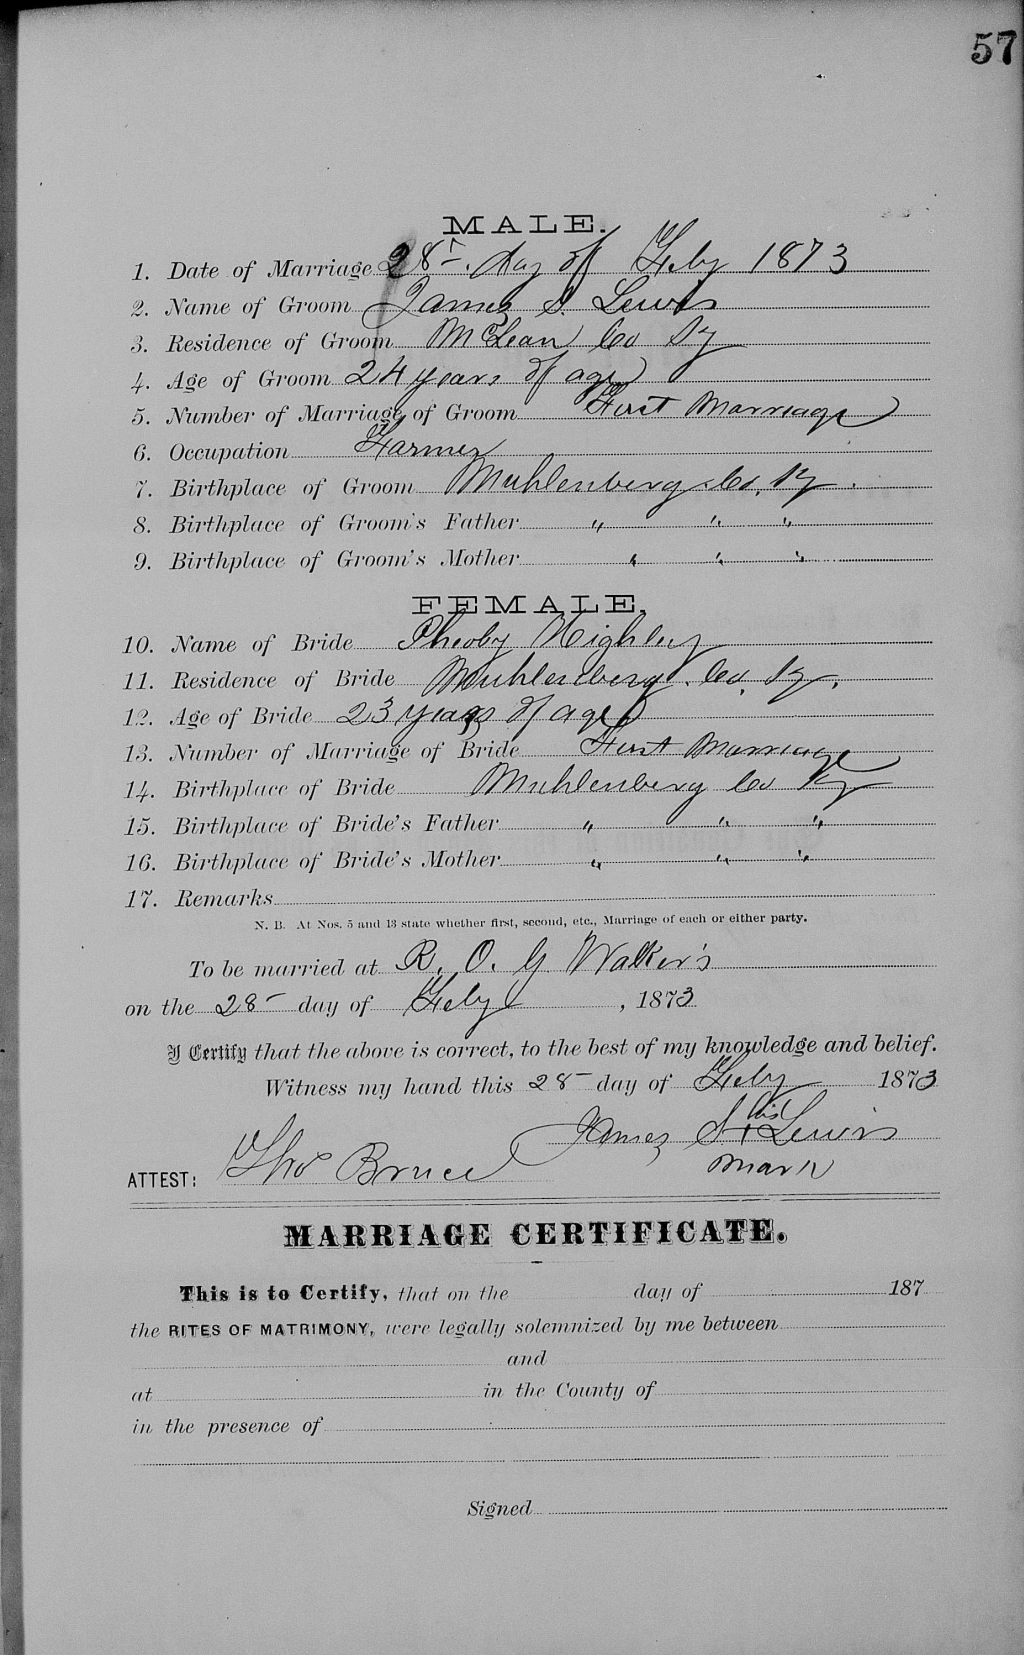 57
MALE.
1. Date of Marriage 28th day of Feby 1873
2. Name of Groom James S. Lewis
3. Residence of Groom McLean Co Ky
4. Age of Groom 24 years of age
5. Number of Marriage of Groom First Marriage
6. Occupation Farmer
7. Birthplace of Groom Muhlenberg Co. Ky.
8. Birthplace of Groom's Father " " "
9. Birthplace of Groom's Mother " " "
FEMALE.
10. Name of Bride Pheoby Nighley
11. Residence of Bride Muhlenberg. Co. Ky.
12. Age of Bride 23 years of age
13. Number of Marriage of Bride First Marriage
14. Birthplace of Bride Muhlenberg Co Ky
15. Birthplace of Bride's Father " " "
16. Birthplace of Bride's Mother " " "
17. Remarks
N. B. At Nos. 5 and 13 state whether first, second, etc., Marriage of each or either party.
To be married at R. O. G Walker's
on the 28 day of Feby, 1873
I Certify that the above is correct, to the best of my knowledge and belief.
Witness my hand this 28 day of Feby 1873
his
James S + Lewis
mark
ATTEST: Tho Bruce
MARRIAGE CERTIFICATE.
This is to Certify, that on the day of 187
the RITES OF MATRIMONY, were legally solemnized by me between
and
at in the County of
in the presence of
Signed